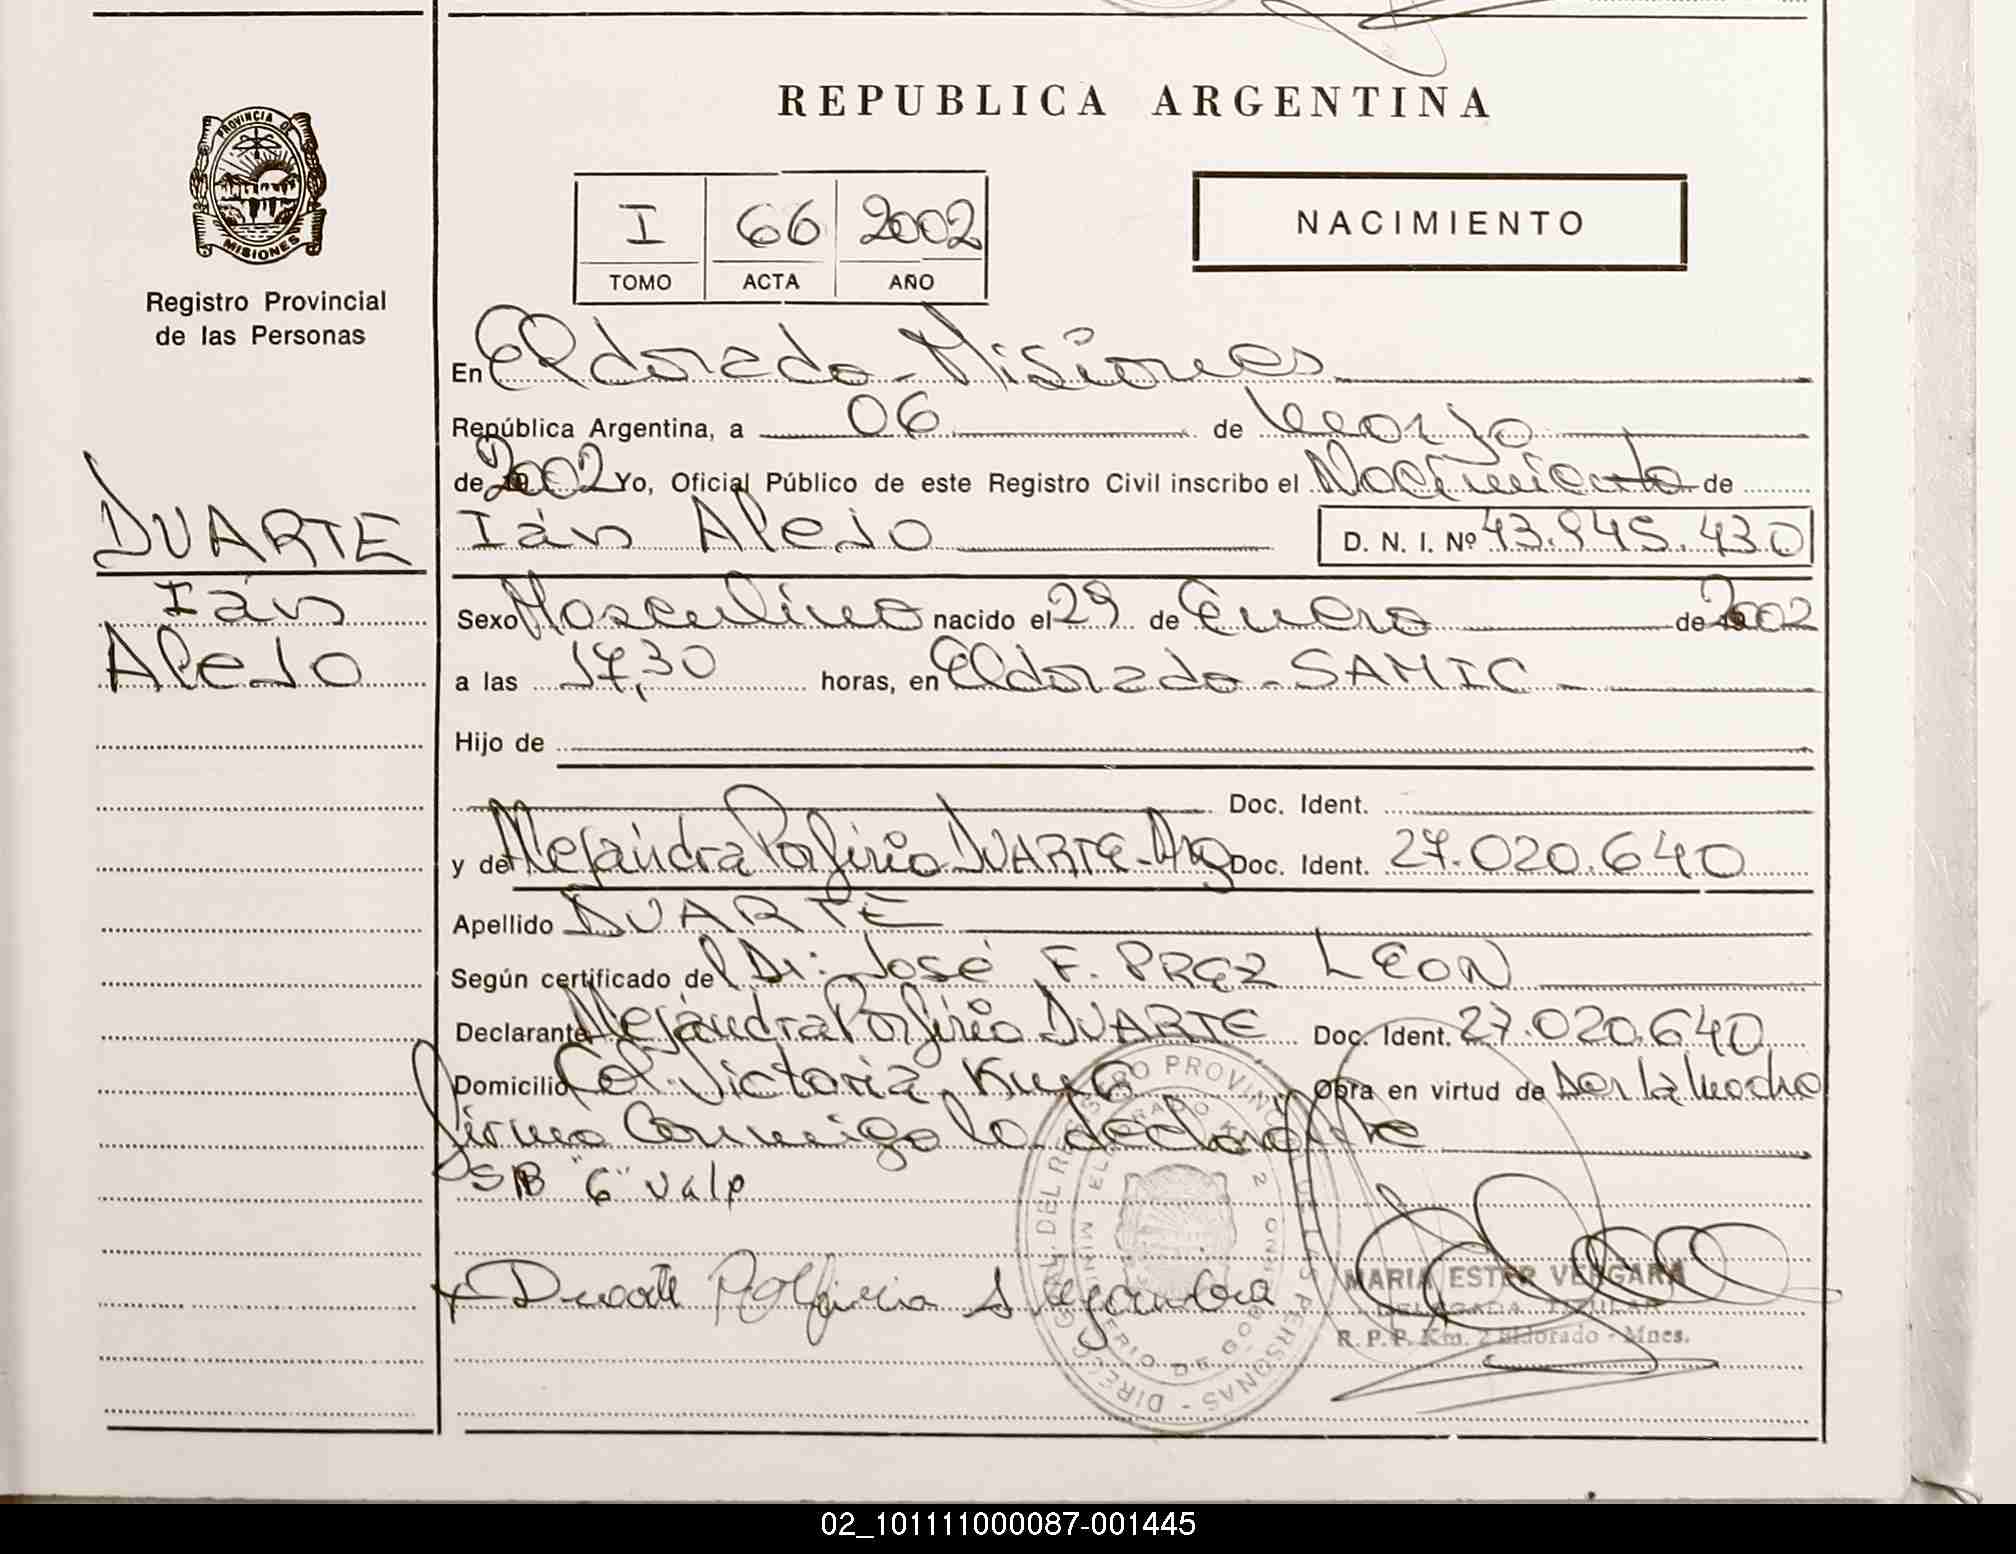 REPUBLICA ARGENTINA
PROVINCIA DE
MISIONES
Registro Provincial
de las Personas
I 66 2002
TOMO ACTA AÑO
NACIMIENTO
En Eldorado - Misiones
República Argentina, a 06 de Marzo
de 2002 Yo, Oficial Público de este Registro Civil inscribo el Nacimiento de
DUARTE
Ián Alejo D. N. I. Nº 43.945.430
Ián
Sexo Masculino nacido el 29 de Enero de 2002
Alejo
a las 17,30 horas, en Eldorado - SAMIC -
Hijo de
Doc. Ident.
y de Alejandra Porfiria DUARTE - Arg Doc. Ident. 27.020.640
Apellido DUARTE
Según certificado del Dr: José F. PREZ LEON
Declarante Alejandra Porfiria DUARTE Doc. Ident. 27.020.640
Domicilio Col. Victoria Obra en virtud de Ser la Madre
firma Conmigo la declarante
SB "6" Valp
x Duarte Porfiria Alejandra
MARIA ESTER VERGARA
DELEGADA TITULAR
R.P.P. Km. 2 Eldorado - Mnes.
02_101111000087-001445